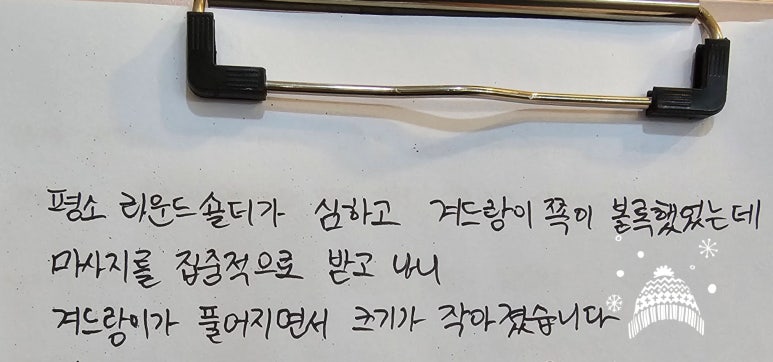 평소 라운드숄더가 심하고 겨드랑이 쪽이 볼록했었는데
마사지를 집중적으로 받고 나니
겨드랑이가 풀어지면서 크기가 작아졌습니다